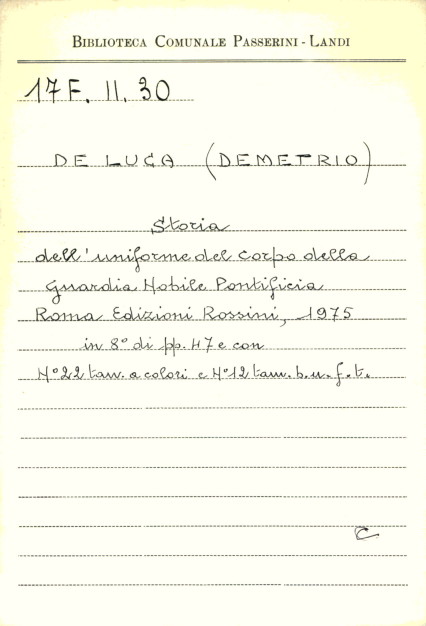 BIBLIOTECA COMUNALE PASSERINI - LANDI
17 F. II. 30
DE LUCA (DEMETRIO)
Storia
dell'uniforme del Corpo della
Guardia Nobile Pontificia
Roma Edizioni Rossini, 1975
in 8° di pp. 47 e con
N° 22 tav. a colori e N° 12 tav. b. n. f. t.
C